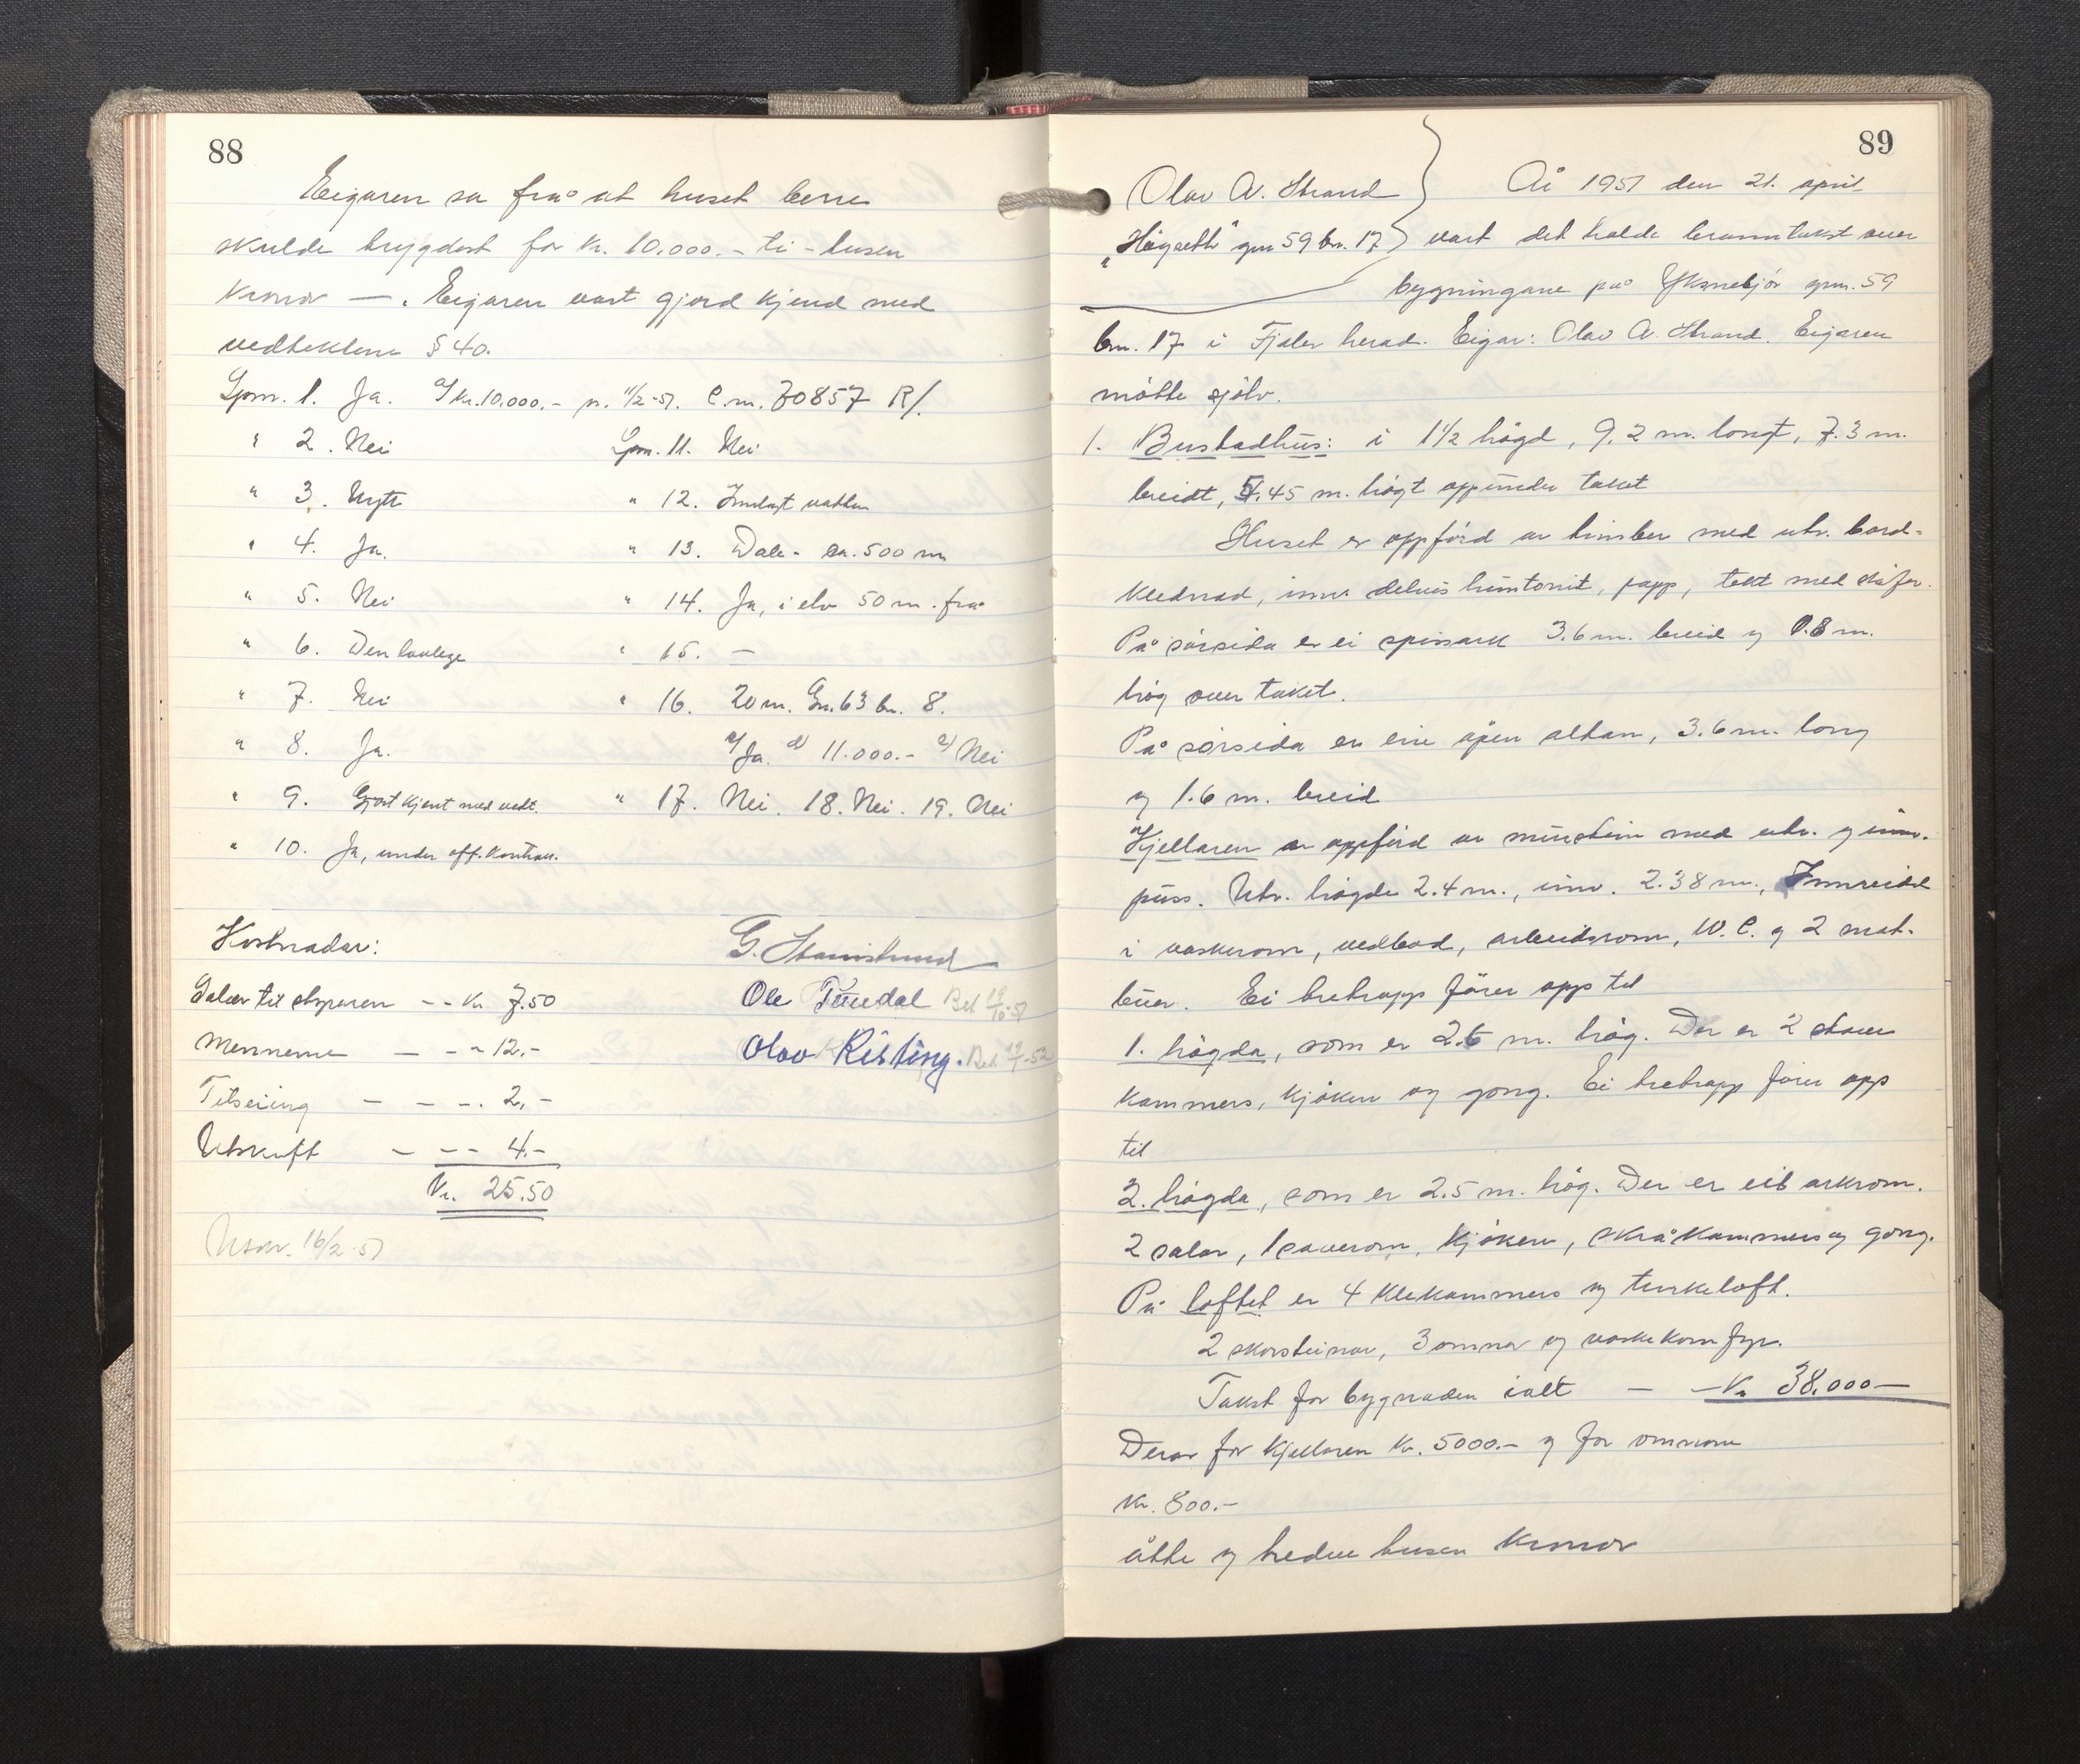 88
Eigaren sa frå at huset berre
skulde trygdast for kr. 10.000.- ti-tusen
kronor —. Eigaren vart gjord kjend med
vedtektene § 40.
Spm. 1. Ja. a/ kr. 10.000.- p. 11/2-51. C.m. 70857 R/.
" 2. Nei
" 3. Nytt
" 4. Ja.
" 5. Nei
" 6. Den lovlege
" 7. Nei
" 8. Ja.
" 9. Gjort kjent med vedt.
" 10. Ja, under off. kontroll.
Spm. 11. Nei
" 12. Innlagt vatten
" 13. Dale - ca. 500 m
" 14. Ja, i elv 50 m. frå
" 15. —
" 16. 20 m. Gn. 63 bn. 8.
a/ Ja. d/ 11.000.- e/ Nei
" 17. Nei. 18. Nei. 19. Nei
Kostnadar:
Salær til skjønsm -- kr. 7.50
Mennene — - " 12.-
Tilseiing — — -. 2,-
Utskrift — - - 4.-
Kr. 25.50
Utskr. 16/2-51
G. Stamstrund
Ole Tundal Bet 19/10-51
Olav Risting. Bet
89
Olav A. Strand
"Høgsett" gn 59 bn. 17
År 1951 den 21. april
vart det halde branntakst over
bygningane på Yksnebjør gnr. 59
bn. 17 i Fjaler herad. Eigar: Olav A. Strand. Eigaren
møtte sjølv.
1. Bustadhus: i 1½ høgd, 9,2 m. langt, 7.3 m.
breidt, 5.45 m. høgt oppunder taket
Huset er oppførd av timber med utv. bord-
kledning, innv. delvis huntonit, papp, tekt med skifer.
På sørsida er ei spissark 3.6 m. breid og 0.8 m.
høg over taket.
På sørsida er ein åpen altan, 3.6 m. lang
og 1.6 m. breid
Kjellaren er oppførd av murstein med utv. og innv.
puss. Utv. høgde 2.4 m., innv. 2.38 m., Innreidd
i vaskerom, vedbod, arbeidsrom, W.C. og 2 mat-
buer. Ei tretrapp fører opp til
1. høgda, som er 2.6 m. høg. Der er 2 stover
kammers, kjøken og gong. Ei tretrapp fører opp
til
2. høgda, som er 2.5 m. høg. Der er eit arkrom.
2 salar, 1 soverom, kjøken, skråkammers og gong.
På loftet er 4 klekammers og turkeloft.
2 skorsteinar, 3 omnar og vaskekomfyr.
Takst for bygnaden ialt — — Kr 38.000—
Derav for kjellaren kr. 5000.- og for omnane
kr. 800.-
åtte og tredve tusen kronor